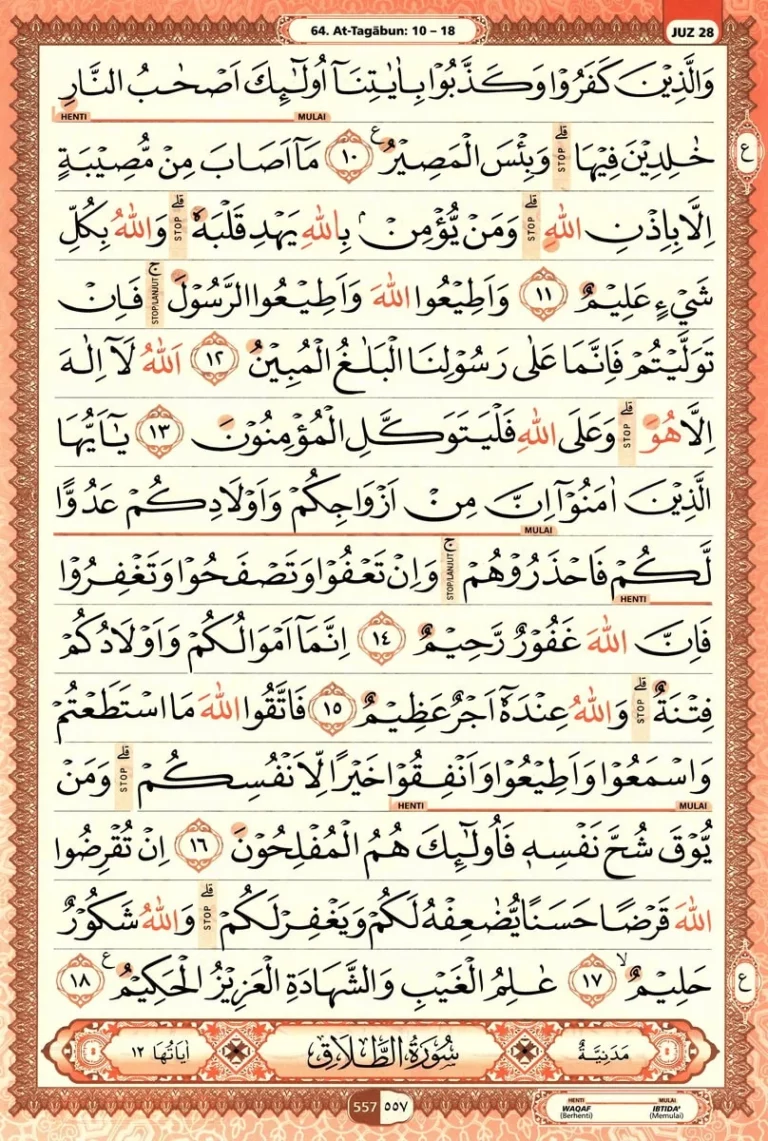 64. At-Tagābun: 10 – 18
JUZ 28
وَالَّذِيْنَ كَفَرُوْا وَكَذَّبُوْا بِاٰيٰتِنَآ اُولٰۤىِٕكَ اَصْحٰبُ النَّارِ
HENTI MULAI
خٰلِدِيْنَ فِيْهَاۗ STOP وَبِئْسَ الْمَصِيْرُ ࣖ ١٠ مَآ اَصَابَ مِنْ مُّصِيْبَةٍ
ع
اِلَّا بِاِذْنِ اللّٰهِ ۗ STOP وَمَنْ يُّؤْمِنْۢ بِاللّٰهِ يَهْدِ قَلْبَهٗ ۗ STOP وَاللّٰهُ بِكُلِّ
شَيْءٍ عَلِيْمٌ ١١ وَاَطِيْعُوا اللّٰهَ وَاَطِيْعُوا الرَّسُوْلَۚ STOP/LANJUT فَاِنْ
تَوَلَّيْتُمْ فَاِنَّمَا عَلٰى رَسُوْلِنَا الْبَلٰغُ الْمُبِيْنُ ١٢ اَللّٰهُ لَآ اِلٰهَ
اِلَّا هُوَۗ STOP وَعَلَى اللّٰهِ فَلْيَتَوَكَّلِ الْمُؤْمِنُوْنَ ١٣ يٰٓاَيُّهَا
الَّذِيْنَ اٰمَنُوْٓا اِنَّ مِنْ اَزْوَاجِكُمْ وَاَوْلَادِكُمْ عَدُوًّا
MULAI
لَّكُمْ فَاحْذَرُوْهُمْۚ STOP/LANJUT وَاِنْ تَعْفُوْا وَتَصْفَحُوْا وَتَغْفِرُوْا
HENTI
فَاِنَّ اللّٰهَ غَفُوْرٌ رَّحِيْمٌ ١٤ اِنَّمَآ اَمْوَالُكُمْ وَاَوْلَادُكُمْ
فِتْنَةٌ ۗ STOP وَاللّٰهُ عِنْدَهٗٓ اَجْرٌ عَظِيْمٌ ١٥ فَاتَّقُوا اللّٰهَ مَا اسْتَطَعْتُمْ
وَاسْمَعُوْا وَاَطِيْعُوْا وَاَنْفِقُوْا خَيْرًا لِّاَنْفُسِكُمْ ۗ STOP وَمَنْ
HENTI MULAI
يُّوْقَ شُحَّ نَفْسِهٖ فَاُولٰۤىِٕكَ هُمُ الْمُفْلِحُوْنَ ١٦ اِنْ تُقْرِضُوا
اللّٰهَ قَرْضًا حَسَنًا يُّضٰعِفْهُ لَكُمْ وَيَغْفِرْ لَكُمْۗ STOP وَاللّٰهُ شَكُوْرٌ
حَلِيْمٌۙ ١٧ عٰلِمُ الْغَيْبِ وَالشَّهَادَةِ الْعَزِيْزُ الْحَكِيْمُ ࣖ ١٨
ع
مَدَنِيَّةٌ سُوْرَةُ الطَّلَاقِ اٰيَاتُهَا ١٢
557 ٥٥٧
HENTI MULAI
WAQAF IBTIDA'
(Berhenti) (Memulai)